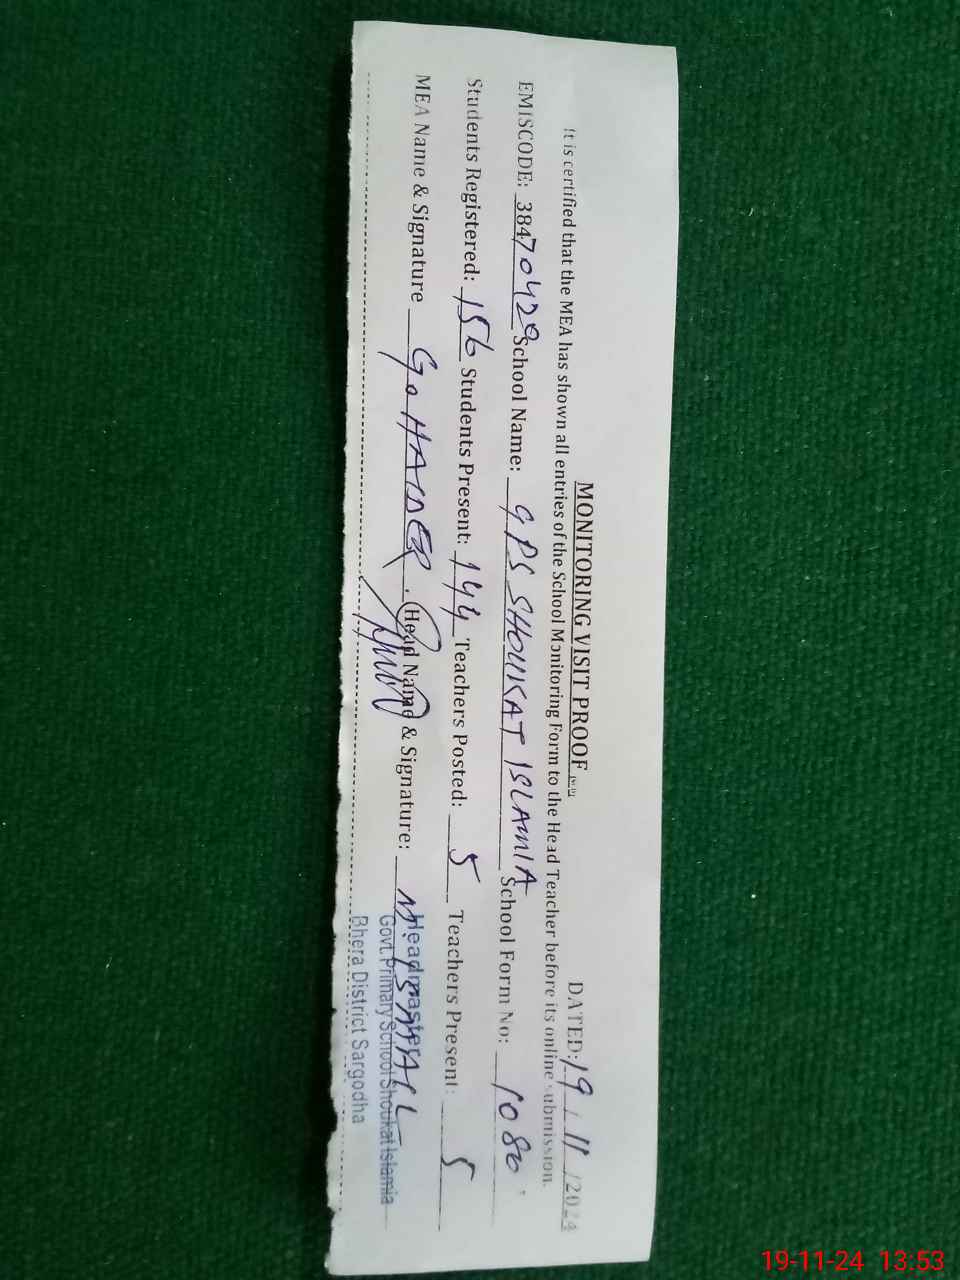 MONITORING VISIT PROOF
DATED: 19 / 11 /2024
It is certified that the MEA has shown all entries of the School Monitoring Form to the Head Teacher before its online submission.
EMISCODE: 38470429 School Name: GPS SHOUKAT ISLAMIA School Form No: 1080
Students Registered: 156 Students Present: 144 Teachers Posted: 5 Teachers Present: 5
MEA Name & Signature G. HAIDER. Head Name & Signature: M. ISMAIL
Headmaster
Govt. Primary School Shoukat Islamia
Bhera District Sargodha
19-11-24 13:53